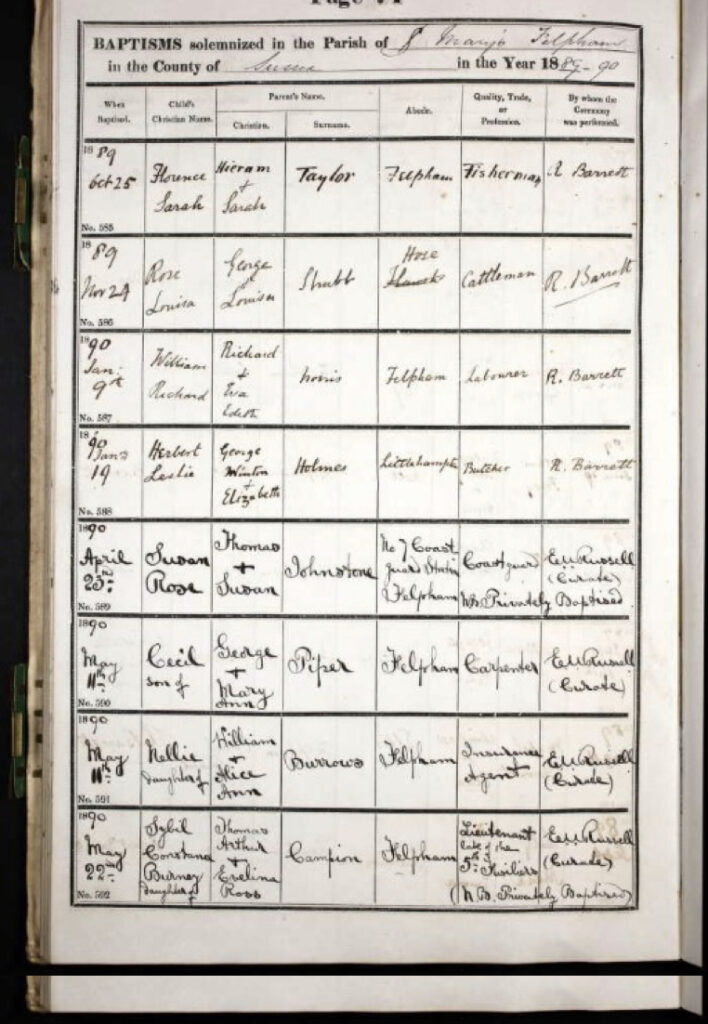 BAPTISMS solemnized in the Parish of St Mary's Felpham
in the County of Sussex in the Year 1889-90
When Baptized. Child's Christian Name. Parent's Name. Abode. Quality, Trade, or Profession. By whom the Ceremony was performed.
Christian. Surname.
1889
Oct 25 Florence Sarah Hieram + Sarah Taylor Felpham Fisherman R Barrett
No. 585
1889
Nov 24 Rose Louisa George + Louisa Stubb Hose Cattleman R. Barrett
No. 586
1890
Jan: 9th William Richard Richard + Eva Edith Norris Felpham Labourer R. Barrett
No. 587
1890
Jany 19 Herbert Leslie George Winton + Elizabeth Holmes Littlehampton Butcher R. Barrett
No. 588
1890
April 23rd Susan Rose Thomas + Susan Johnstone No 7 Coast guard Station Felpham Coastguard E.W. Russell (Curate)
NB. Privately Baptised
No. 589
1890
May 11th Cecil son of George + Mary Ann Piper Felpham Carpenter E.W. Russell (Curate)
No. 590
1890
May 11th Nellie daughter of William + Alice Ann Burrows Felpham Insurance Agent E.W. Russell (Curate)
No. 591
1890
May 22nd Sybil Constance Burney daughter of Thomas Arthur + Evelina Ross Campion Felpham Lieutenant late of the 5th Fusiliers E.W. Russell (Curate)
(N.B. Privately Baptised)
No. 592